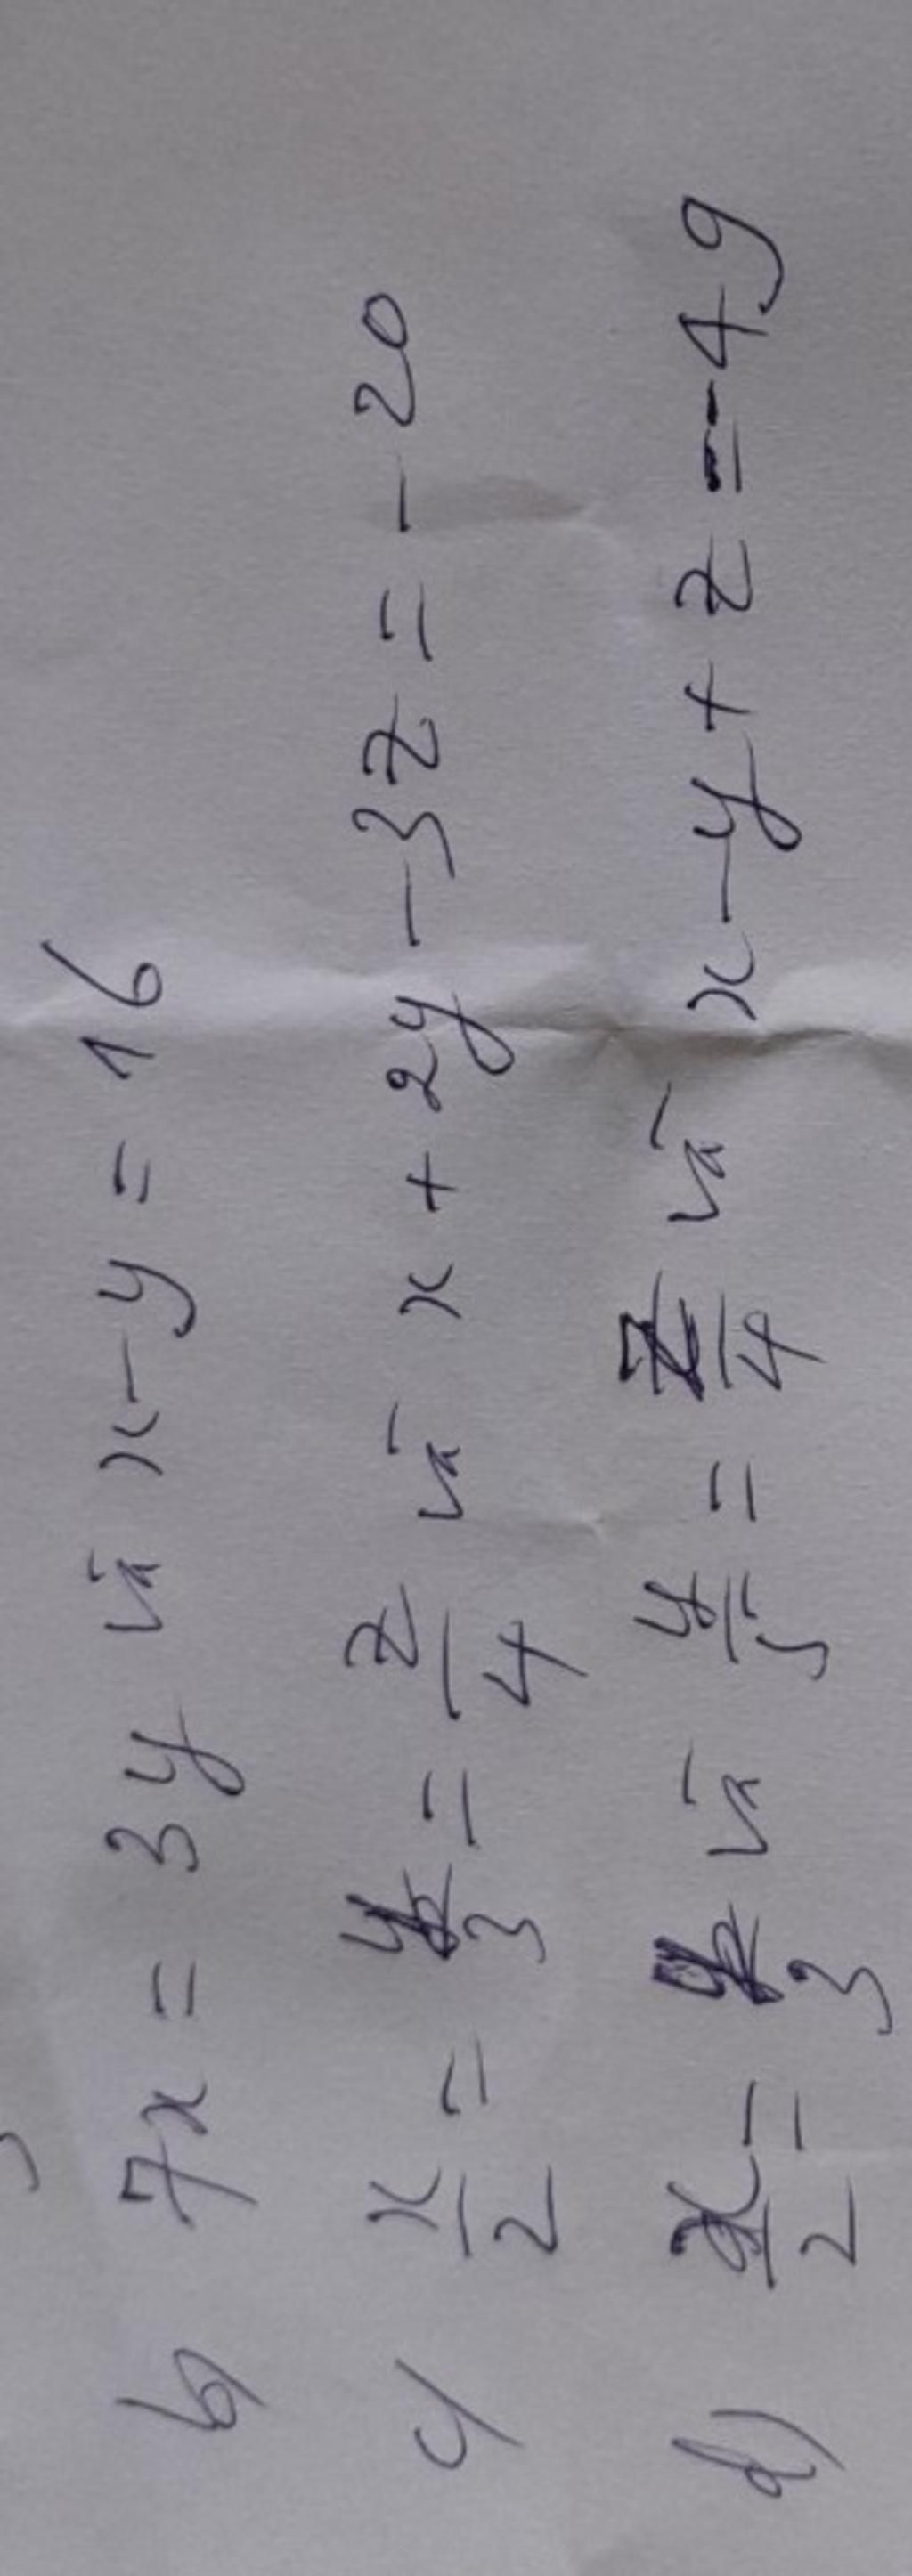 b) 7x = 3y và x - y = 16
c) x/2 = y/3 = z/4 và x + 2y - 3z = - 20
d) x/2 = y/3 và y/5 = z/4 và x - y + z = - 49